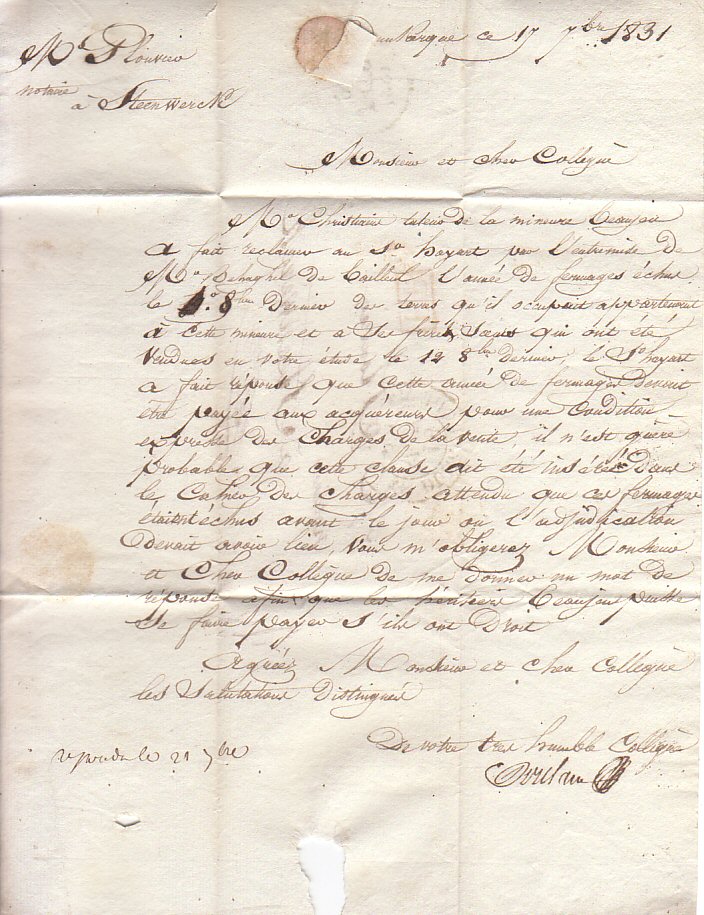 Mᵉ Plouvier
notaire
à Steenwerck
Dunkerque ce 17 7bre 1831
Monsieur et cher Collegue
Mʳ Christiaen tuteur de la mineure Beaujeu
a fait réclamer au Sʳ hoyart par l'entremise de
Mᵉ Behaghel de Bailleul l'année de fermages échus
le 1º 8bre Dernier des terres qu'il occupait appartenant
à cette mineure et a Ses freres, Sœurs qui ont été
vendues en votre étude le 12 8bre dernier, le Sʳ hoyart
a fait réponse que cette année de fermages devait
être payée aux acquéreurs pour une Condition
expresse des Charges de la vente, il n'est guère
probable que cette clause ait été insérée dans
le Cahier des charges attendu que ces fermages
étaient échus avant le jour ou l'adjudication
Devait avoir lieu, vous m'obligerez Monsieur
et Cher Collègue de me donner un mot de
réponse afin que les Beaujeu puisse
se faire payer s'ils ont Droit
Agréez Monsieur et cher Collegue
les salutations Distinguées
De votre très humble Collègue
reponda le 21 7bre